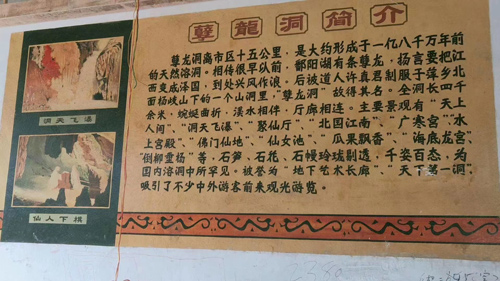 孽龍洞简介
孽龙洞离市区十五公里，是大约形成于一亿八千万年前
的天然溶洞。相传很早以前，鄱阳湖有条孽龙，扬言要把江
西变成泽国，到处兴风作浪。后被道人许真君制服于萍乡北
面杨岐山下的一个山洞里，"孽龙洞"故得其名。全洞长四千
余米，蜿蜒曲折，溪水相伴，厅廊相连。主要景观有"天上
人间"、"洞天飞瀑"、"聚仙厅"、"北国江南"、"广寒宫"、"水
上宫殿"、"佛门仙地"、"仙女池"、"瓜果飘香"、"海底龙宫"、
"倒柳垂杨"等，石笋、石花、石幔玲珑剔透，千姿百态，为
国内溶洞中所罕见。被誉为"地下艺术长廊"、"天下第一洞"，
吸引了不少中外游客前来观光游览。
洞天飞瀑
仙人下棋